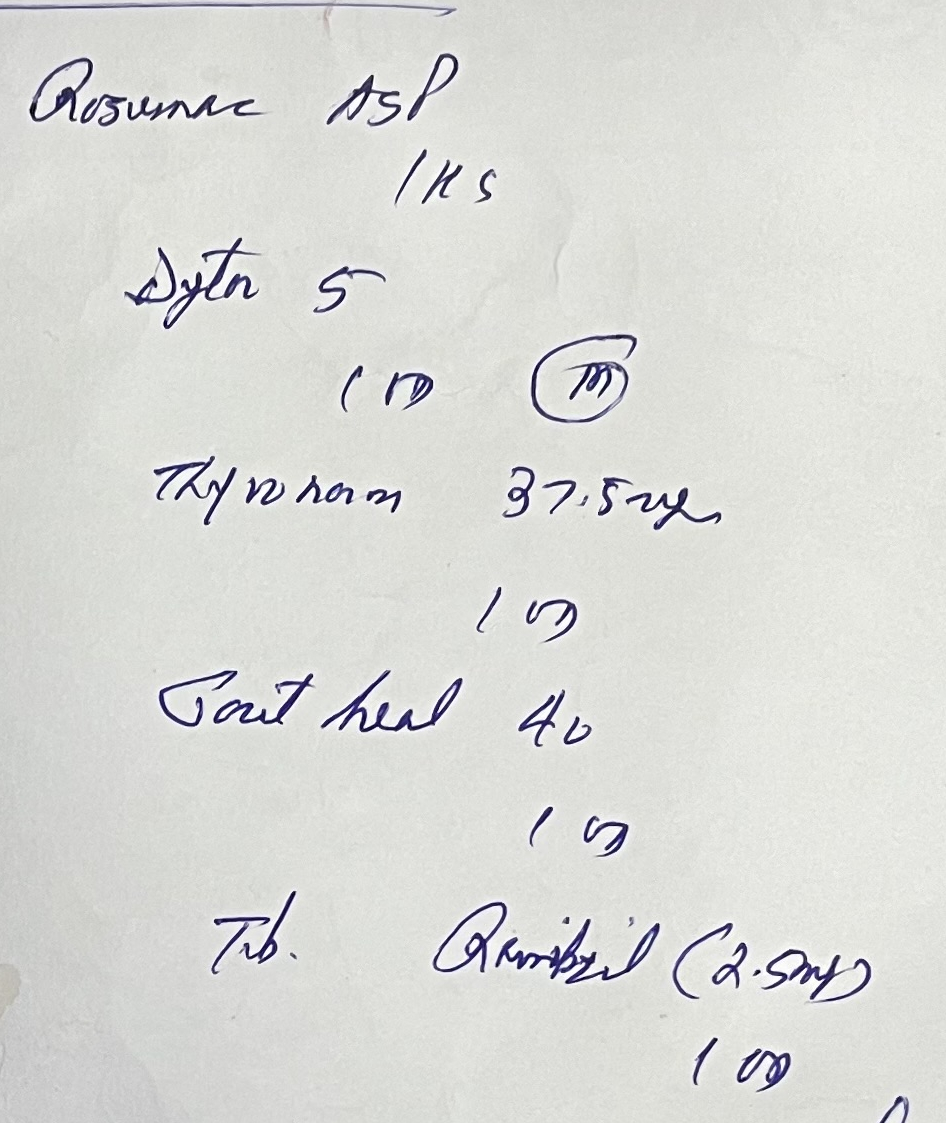 Rosumac ASP
1 HS
Dytor 5
1 OD (M)
Thyronorm 37.5mcg
1 OD
Gout heal 40
1 OD
Tab. (2.5mg)
1 OD